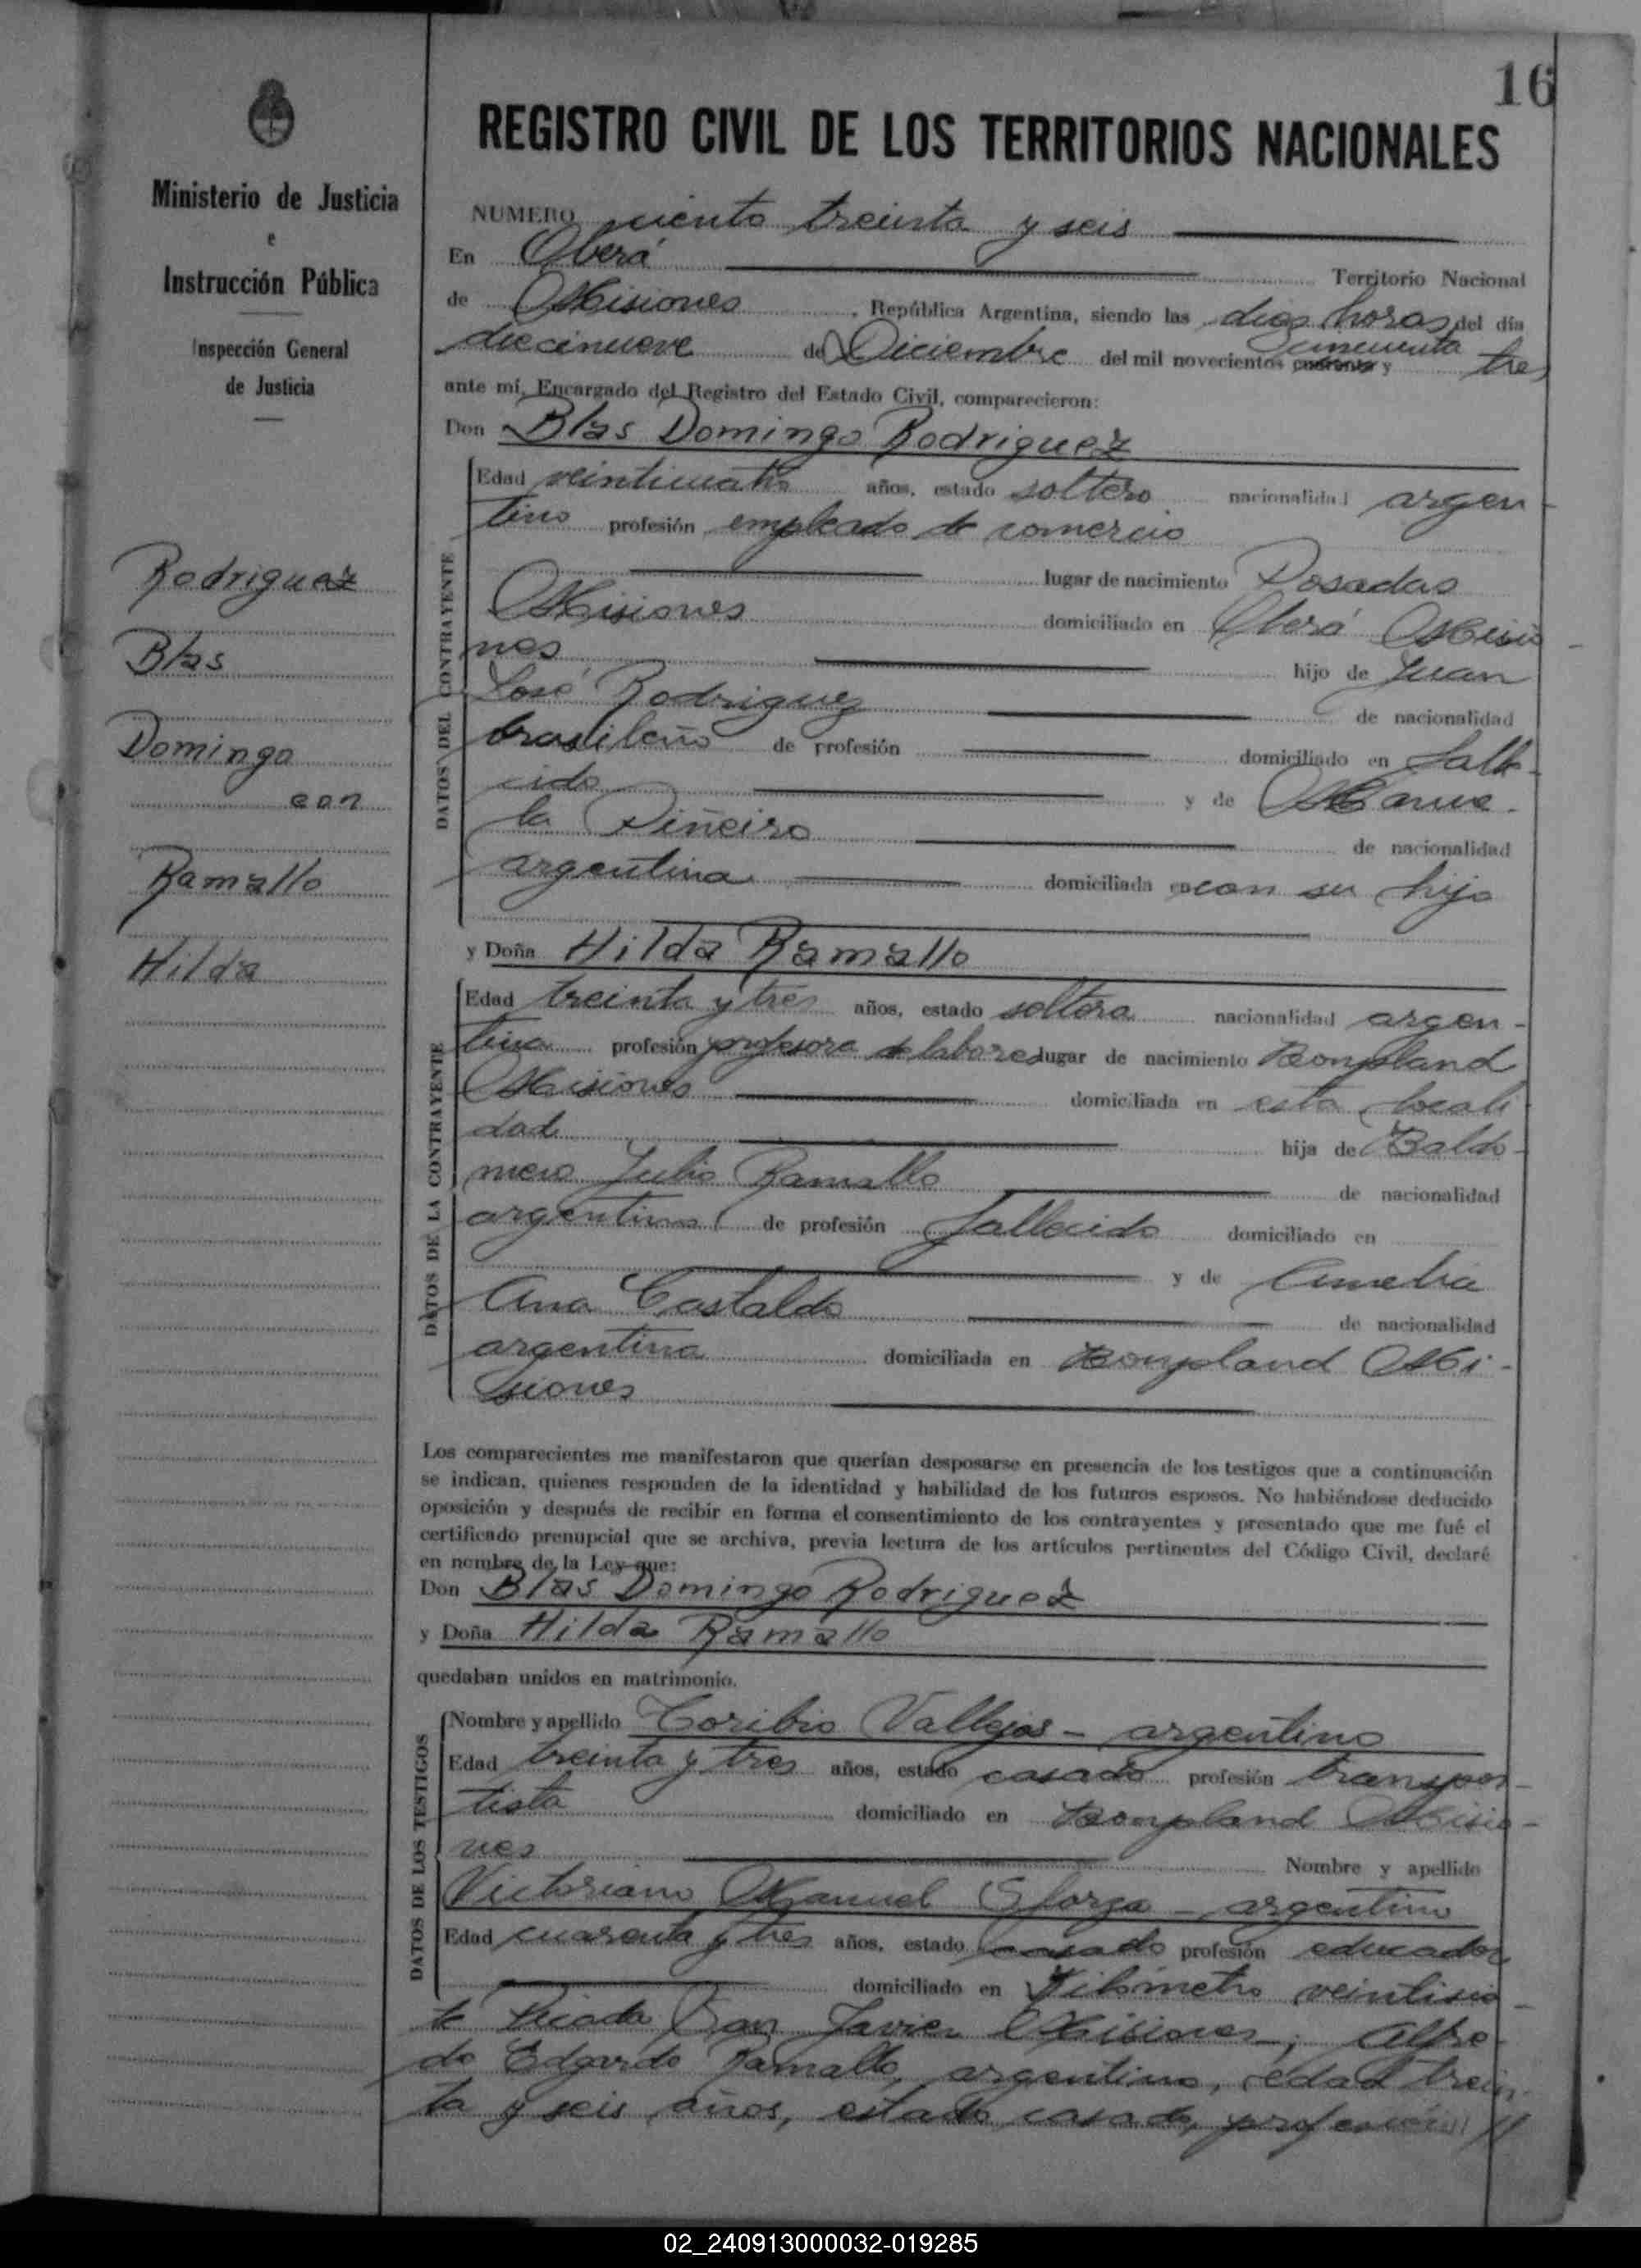 16
REGISTRO CIVIL DE LOS TERRITORIOS NACIONALES
Ministerio de Justicia
e
Instrucción Pública
Inspección General
de Justicia
Rodriguez
Blas
Domingo
con
Ramallo
Hilda
NUMERO ciento treinta y seis
En Oberá Territorio Nacional
de Misiones, República Argentina, siendo las diez horas del día
diecinueve de Diciembre del mil novecientos cuarenta cincuenta y tres
ante mí, Encargado del Registro del Estado Civil, comparecieron:
Don Blas Domingo Rodriguez
DATOS DEL CONTRAYENTE
Edad veinticuatro años, estado soltero nacionalidad argen-
tino profesión empleado de comercio
lugar de nacimiento Posadas
Misiones domiciliado en Oberá Misio-
nes hijo de Juan
José Rodriguez de nacionalidad
brasileño de profesión domiciliado en falle-
cido y de Manue-
la Piñeiro de nacionalidad
argentina domiciliada en con su hijo
y Doña Hilda Ramallo
DATOS DE LA CONTRAYENTE
Edad treinta y tres años, estado soltera nacionalidad argen-
tina profesión profesora de labores lugar de nacimiento Bonpland
Misiones domiciliada en esta locali
dad hija de Baldo-
mero Julio Ramallo de nacionalidad
argentino de profesión fallecido domiciliado en
y de Amelia
Ana Castaldo de nacionalidad
argentina domiciliada en Bonpland Mi-
siones
Los comparecientes me manifestaron que querían desposarse en presencia de los testigos que a continuación
se indican, quienes responden de la identidad y habilidad de los futuros esposos. No habiéndose deducido
oposición y después de recibir en forma el consentimiento de los contrayentes y presentado que me fué el
certificado prenupcial que se archiva, previa lectura de los artículos pertinentes del Código Civil, declaré
en nombre de la Ley que:
Don Blas Domingo Rodriguez
y Doña Hilda Ramallo
quedaban unidos en matrimonio.
DATOS DE LOS TESTIGOS
Nombre y apellido Toribio Vallejos - argentino
Edad treinta y tres años, estado casado profesión transpor-
tista domiciliado en Bonpland Misio-
nes Nombre y apellido
Victoriano Manuel Sforza - argentino
Edad cuarenta y tres años, estado casado profesión educador
domiciliado en Kilómetro veintisie-
te Picada San Javier Misiones; Alfre-
do Edgardo Ramallo, argentino, edad trein-
ta y seis años, estado casado, profesión //
02_240913000032-019285